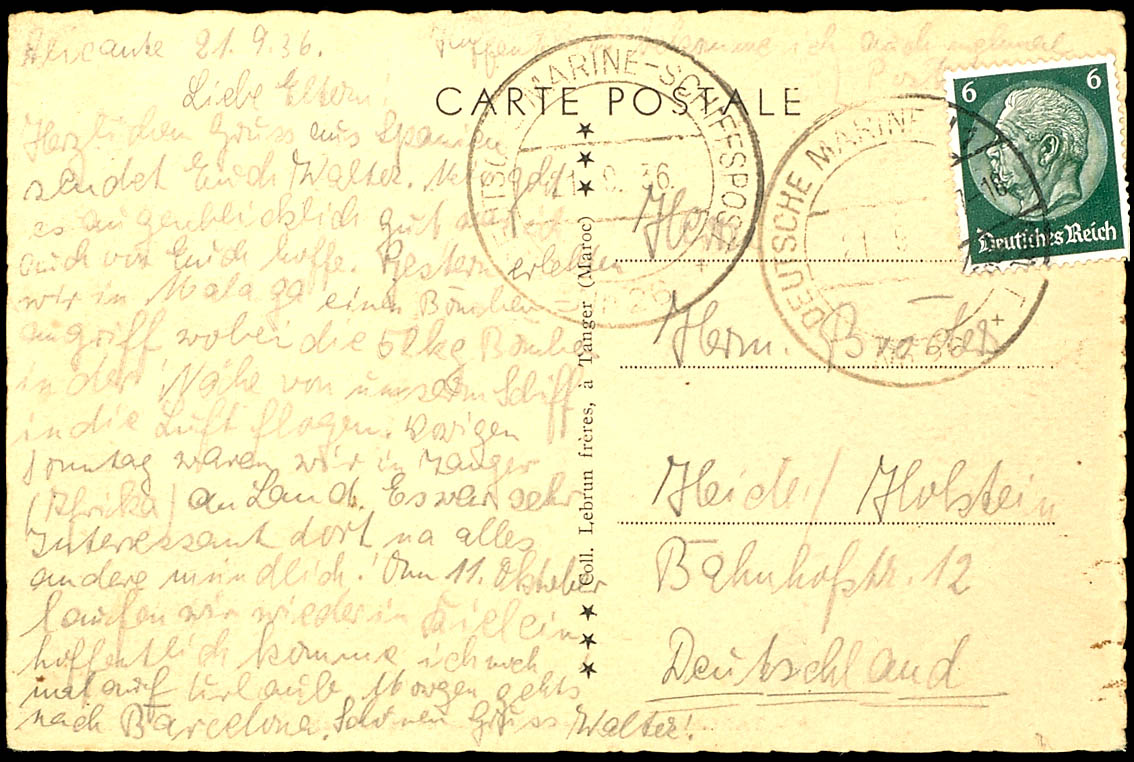 Alicante 21.9.36.
Liebe Eltern!
Herzlichen Gruss aus Spanien
sendet Euch Walter. Mir geht
es augenblicklich gut was ich
auch von Euch hoffe. Gestern erlebten
wir in Malaga einen Bomben
angriff wobei die 50kg Bomben
in der Nähe von unserm Schiff
in die Luft flogen. Vorigen
Sonntag waren wir in Tanger
(Afrika) an Land. Es war sehr
Interessant dort na alles
andere mündlich! Am 11. Oktober
laufen wir wieder in Kiel ein
hoffentlich komme ich noch
mal auf Urlaub. Morgen gehts
nach Barcelona. Schönen Gruss Walter!
komme ich auch nochmal
CARTE POSTALE
Coll. Lebrun frères, à Tanger (Maroc)
DEUTSCHE MARINE-SCHIFFSPOST
36
26
DEUTSCHE MARINE
6 6
Deutsches Reich
Herrn
Herm.
Heide/Holstein
Bahnhofstr. 12
Deutschland